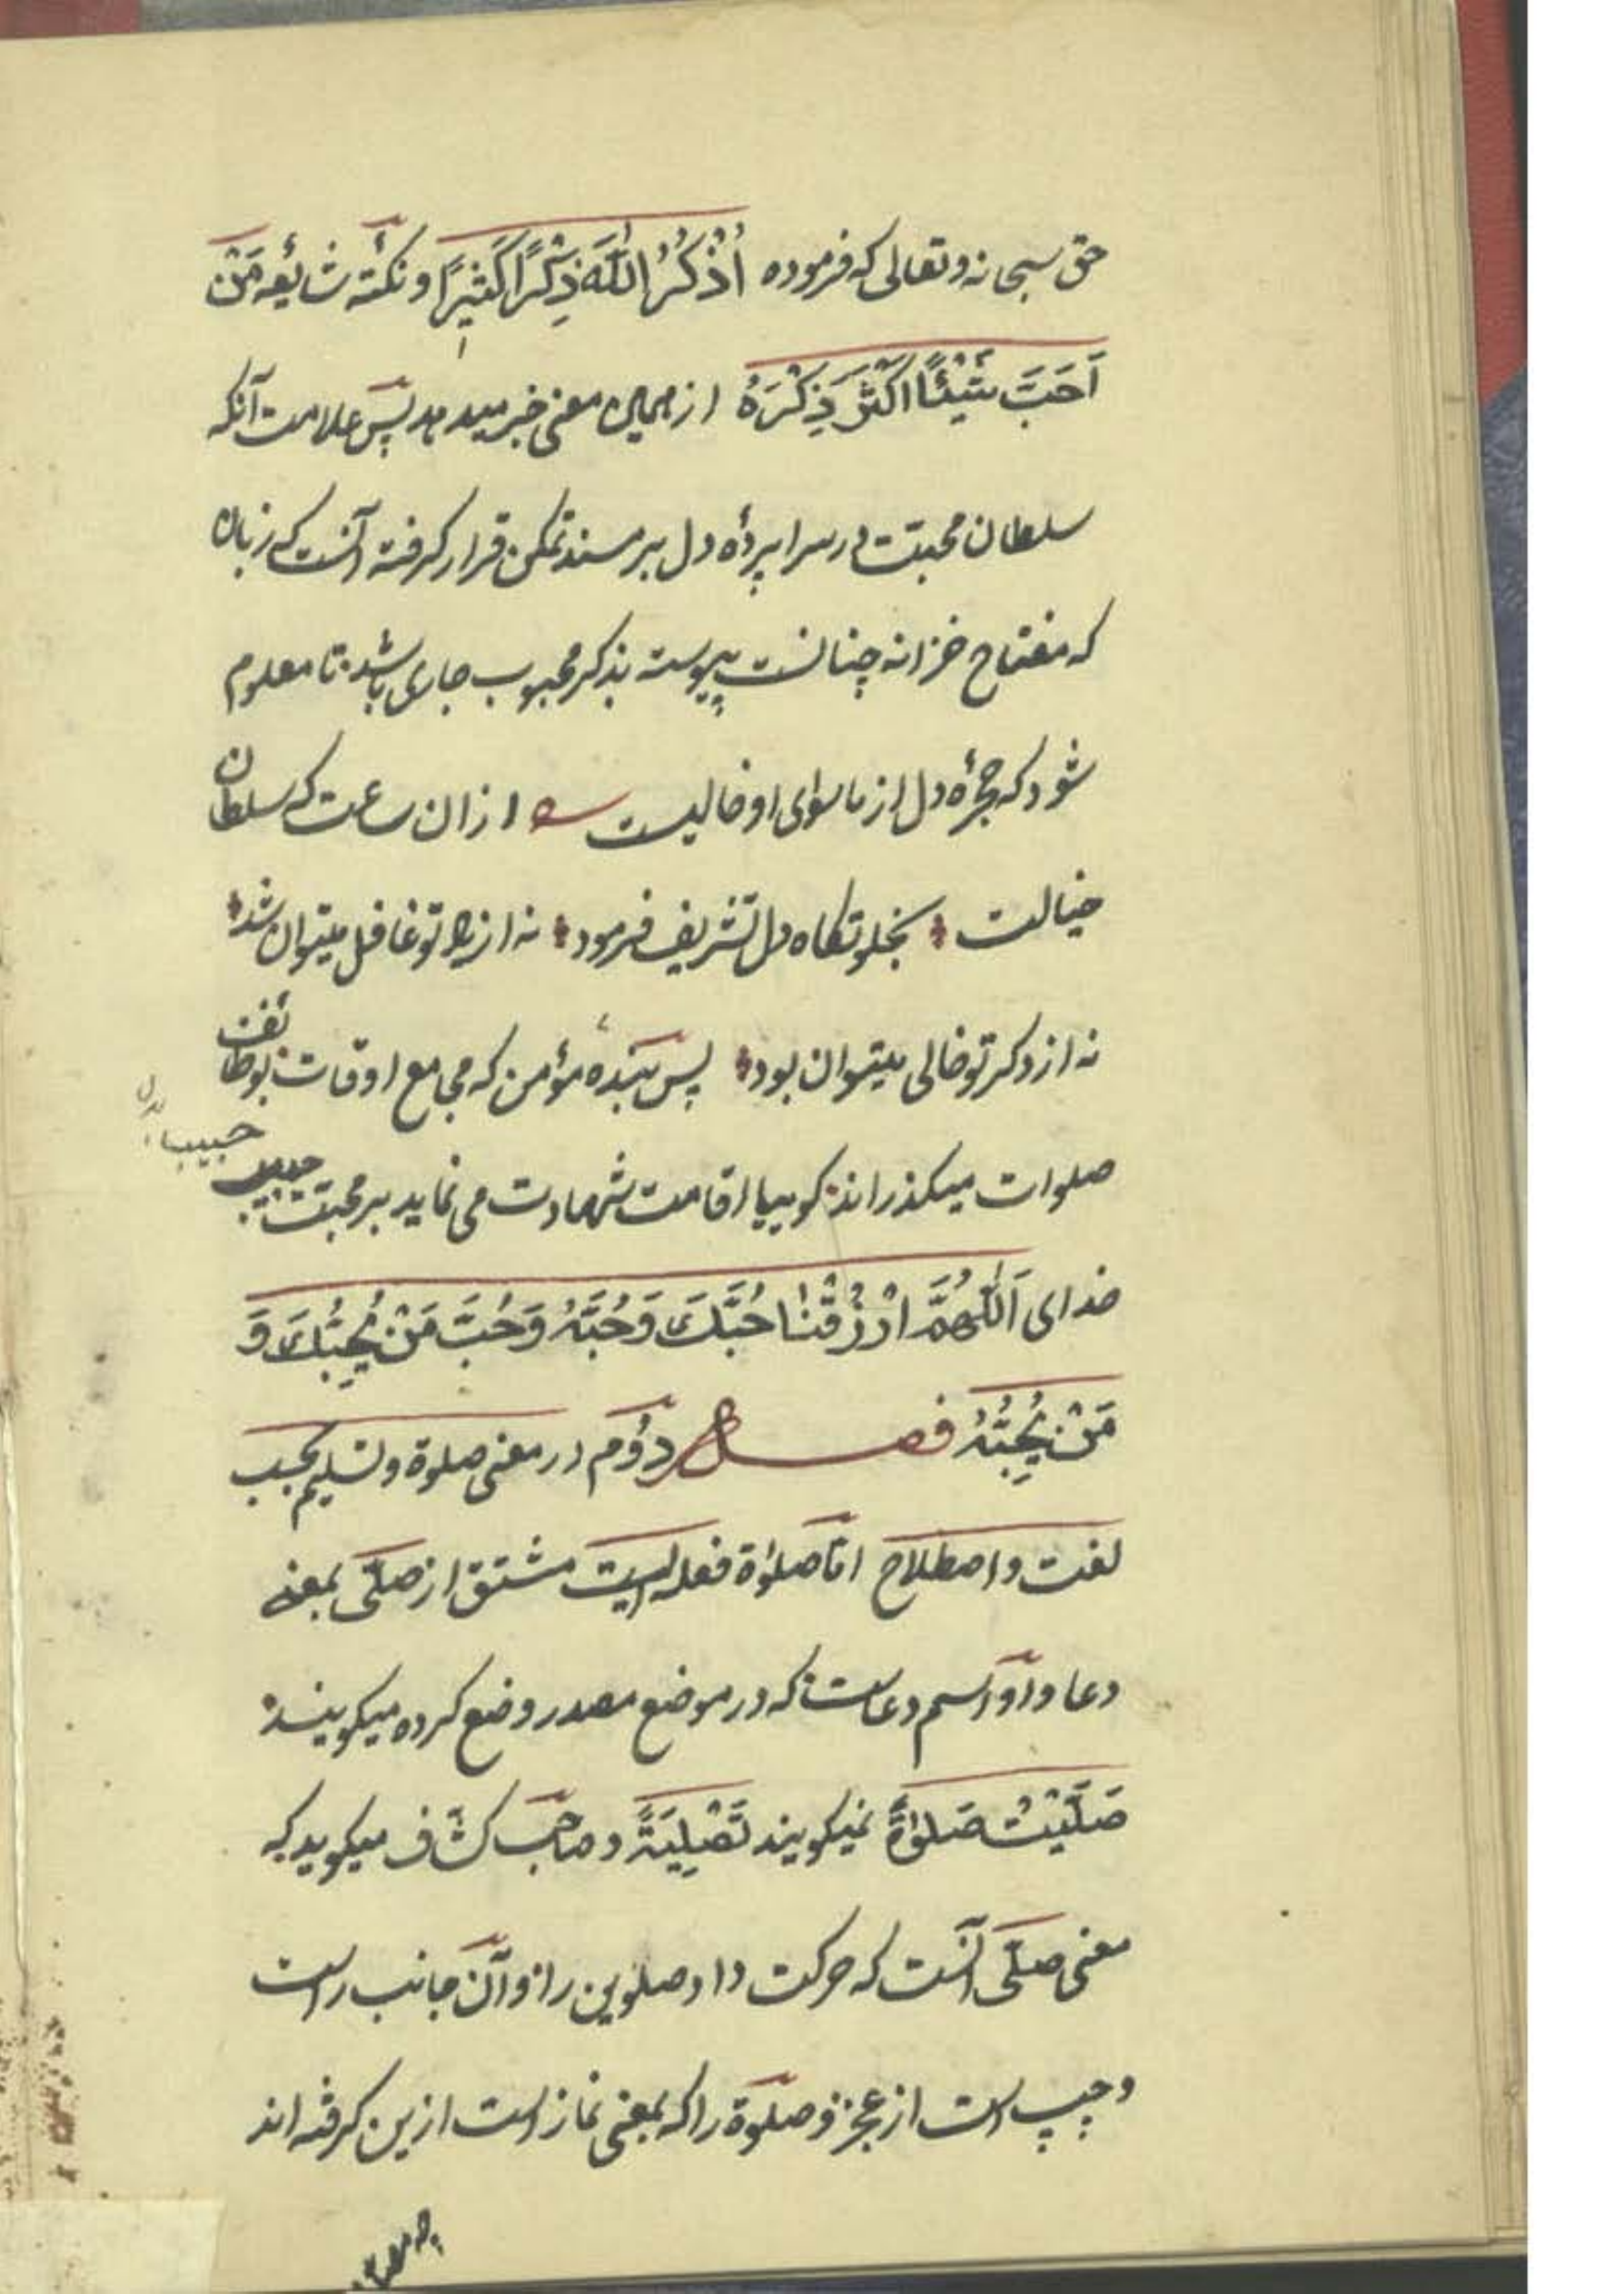 حق سبحانه وتعالی که فرموده اُذْکُرُ اللّٰهَ ذِکْرًا کَثِیرًا و نکتهٔ شایعه مَنْ
اَحَبَّ شَیْئًا اَکْثَرَ ذِکْرَهُ از همین معنی خبر میدهد پس علامت آنکه
سلطان محبّت در سراپردهٔ دل بر مسند تمکن قرار کرفته آنست که زبان
که مفتاح خزانه چنانست پیوسته بذکر محبوب جاری باشد تا معلوم
شود که حجرهٔ دل از ماسوای او خالیست ازان ساعت که سلطان
خیالت بخلوتکاه دل تشریف فرمود نه از یاد تو غافل میتوان شد
نه از ذکر تو خالی میتوان بود پس بندهٔ مؤمن که مجامع اوقات بوظائف
صلوات میکذراند کوییا اقامت شهادت می نماید بر محبّت حبیب
حبیب بدل
خدای اَللّٰهُمَّ ارْزُقْنٰا حُبَّکَ وَحُبَّهُ وَحُبَّ مَنْ یُحِبُّکَ وَ
مَنْ یُحِبُّهُ فصل دوُم در معنی صلوة و تسلیم بحسب
لغت و اصطلاح امّا صلوٰة فعله ایست مشتق از صلّی بمعنی
دعا و او اسم دعاست که در موضع مصدر وضع کرده میکویند
صَلَّیْتُ صَلوٰةً نمیکویند تَصْلِیَةً و صاحب کشّاف میکوید که
معنی صلّی آنست که حرکت داد صلوین را و آن جانب راست
و چپ است از عجز و صلوة را که بمعنی نماز است ازین کرفته اند